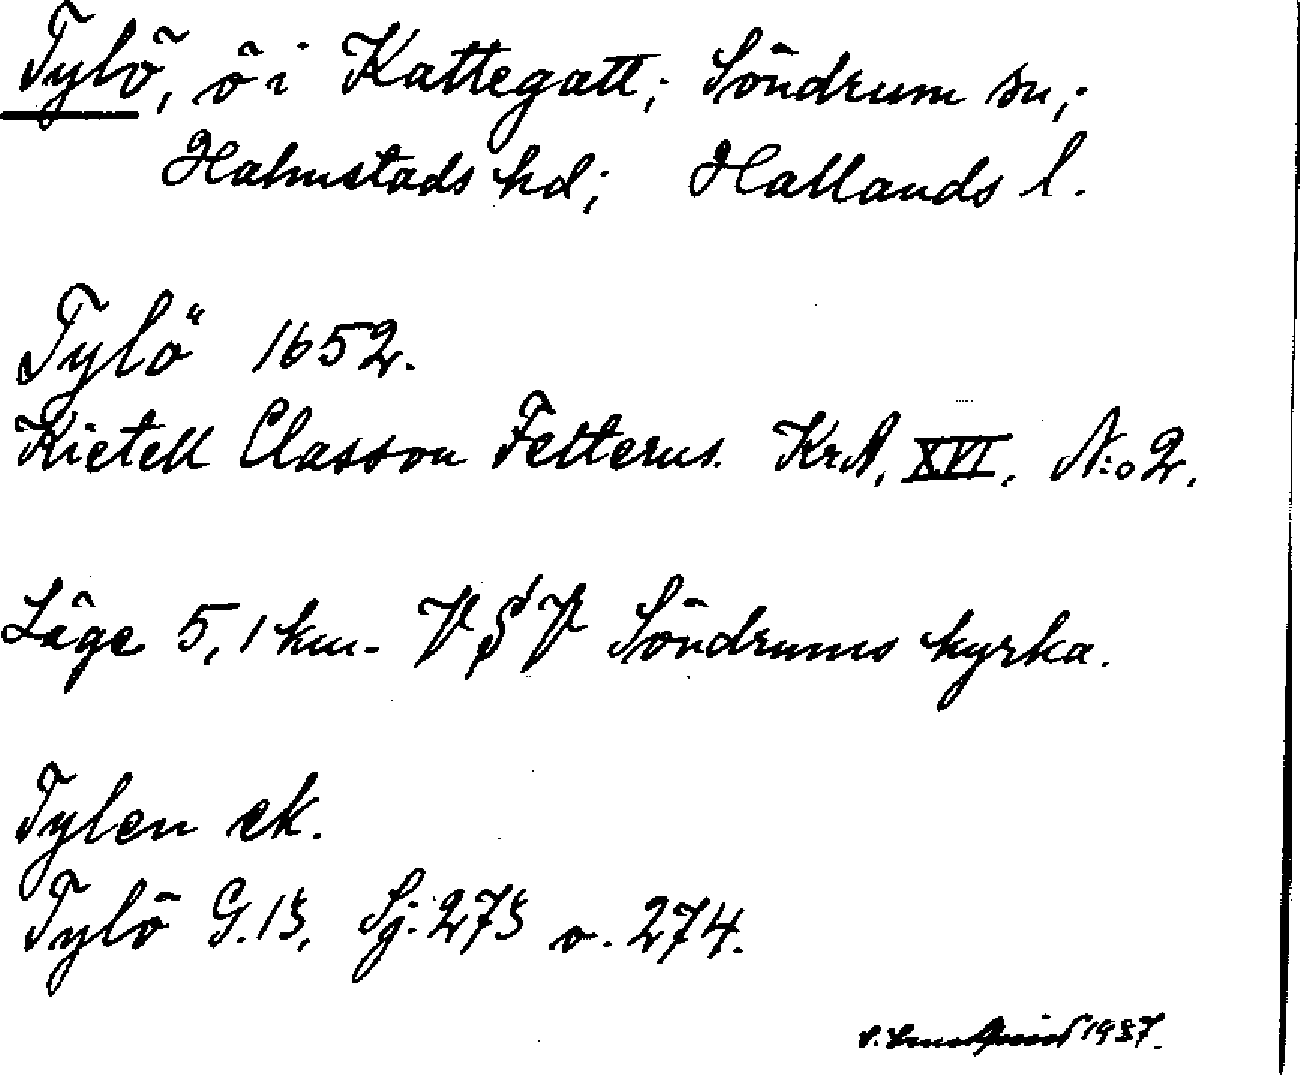 Tylö, ö i Kattegatt; Söndrum sn;
Halmstads hd; Hallands l.
Tylö 1652.
Kietell Classon Felterus. KrA. XVI. N:o 2.
Läge 5,1 km. V § V Söndrums kyrka.
Tylen ek.
Tylö G.13, Sj. 273 o. 274.
1937.